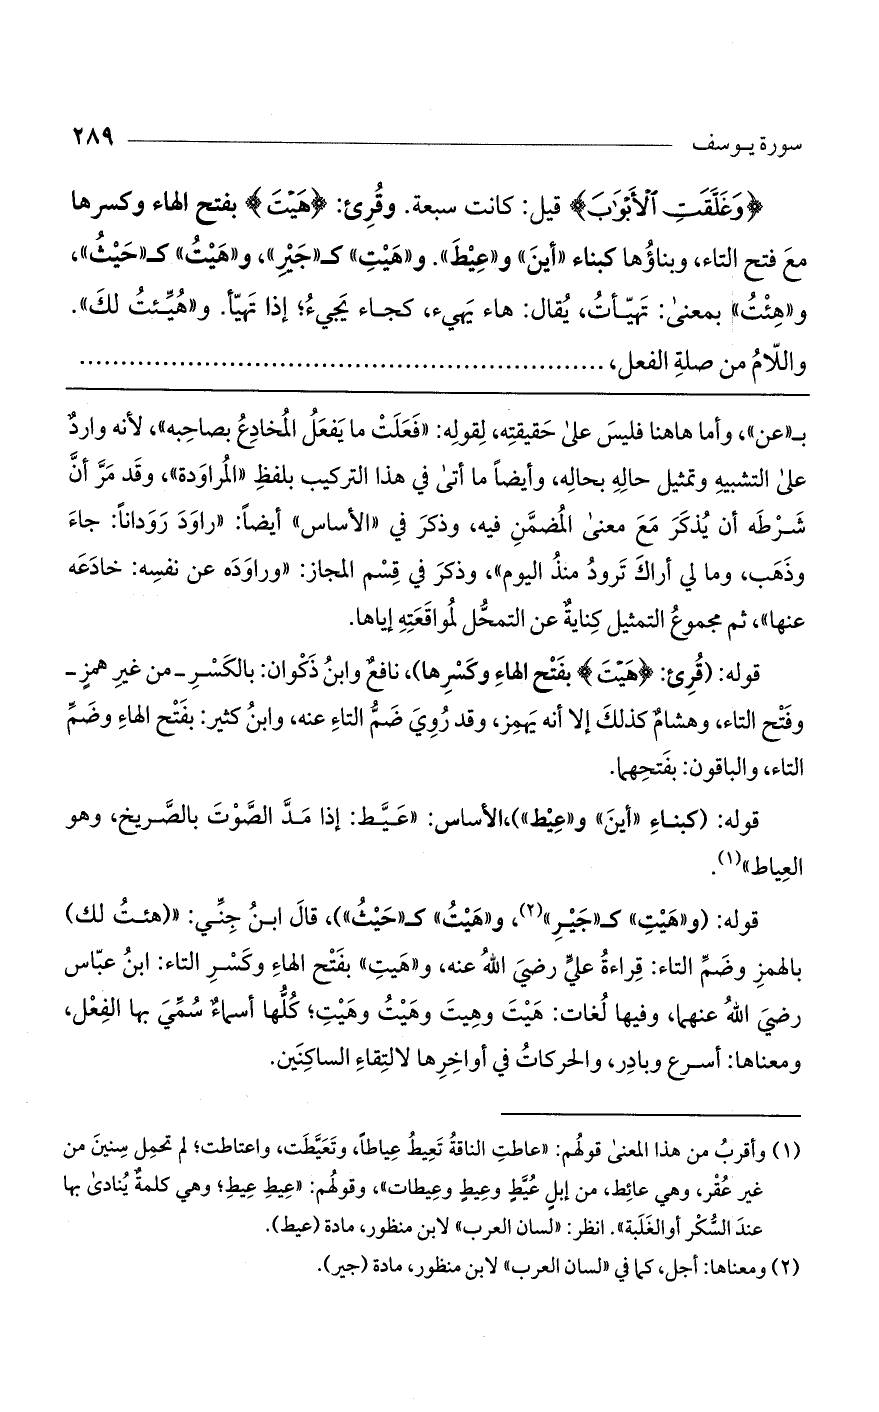 سورة يوسف ٢٨٩
﴿وَغَلَّقَتِ ٱلْأَبْوَٰبَ﴾ قيل: كانت سبعة. وقُرِئ: ﴿هَيْتَ﴾ بفتح الهاء وكسرها
معَ فتح التاء، وبناؤُها كبناء «أينَ» و«عِيْطَ». و«هَيْتِ» كـ«جَيْرِ»، و«هَيْتُ» كـ«حَيْثُ»،
و«هِئْتُ» بمعنىٰ: تهَيّأتُ، يُقال: هاء يَهيء، كجاء يَجيءُ؛ إذا تهيّأ. و«هُيِّئتُ لكَ».
واللّامُ من صلةِ الفعل، ...................................................................
بـ«عن»، وأما هاهنا فليسَ علىٰ حَقيقتِه، لِقولِه: «فَعَلَتْ ما يَفعَلُ المُخادِعُ بصاحِبِه»، لأنه واردٌ
علىٰ التشبيهِ وتمثيل حالِهِ بحالِه، وأيضاً ما أتىٰ في هذا التركيب بلفظِ «المُراوَدة»، وقَد مَرَّ أنَّ
شَرْطَه أن يُذكَرَ مَعَ معنىٰ المُضمَّنِ فيه، وذكرَ في «الأساس» أيضاً: «راوَدَ رَوَداناً: جاءَ
وذَهَب، وما لي أراكَ تَرودُ منذُ اليوم»، وذكرَ في قِسْم المجاز: «وراوَدَه عن نفسِه: خادَعَه
عنها»، ثم مجموعُ التمثيل كِنايةٌ عن التمحُّل لمُواقَعَتِهِ إياها.
قوله: (قُرِئ: ﴿هَيْتَ﴾ بفَتْح الهاءِ وكَسْرِها)، نافعٌ وابنُ ذَكْوان: بالكَسْرِ - من غيرِ همزٍ -
وفَتْح التاء، وهشامٌ كذلكَ إلا أنه يَهمِز، وقد رُوِيَ ضَمُّ التاءِ عنه، وابنُ كثير: بفَتْح الهاءِ وضَمِّ
التاء، والباقون: بفَتحِهما.
قوله: (كبناءِ «أينَ» و«عِيْط»)،الأساس: «عَيَّط: إذا مَدَّ الصَّوْتَ بالصَّريخ، وهو
العِياط»(١).
قوله: (و«هَيْتِ» كـ«جَيْرِ»(٢)، و«هَيْتُ» كـ«حَيْثُ»)، قالَ ابنُ جِنِّي: «(هئتُ لك)
بالهمزِ وضَمِّ التاء: قِراءةُ عليٍّ رضيَ اللهُ عنه، و«هَيتِ» بفَتْح الهاءِ وكَسْرِ التاء: ابنُ عبّاس
رضيَ اللهُ عنهما، وفيها لُغات: هَيْتَ وهِيتَ وهَيْتُ وهَيْتِ؛ كُلُّها أسماءٌ سُمِّيَ بها الفِعْل،
ومعناها: أسرع وبادِر، والحركاتُ في أواخِرِها لالتِقاءِ الساكِنَين.
(١) وأقربُ من هذا المعنىٰ قولُهم: «عاطتِ الناقةُ تَعِيطُ عِياطاً، وتَعَيَّطَت، واعتاطت؛ لم تحمِل سِنينَ من
غير عُقْر، وهي عائِط، من إبلٍ عُيَّطٍ وعِيطٍ وعِيطات»، وقولُهم: «عِيطِ عِيطِ؛ وهي كلمةٌ يُنادىٰ بها
عندَ السُّكْر أوالغَلَبة». انظر: «لسان العرب» لابن منظور، مادة (عيط).
(٢) ومعناها: أجل، كما في «لسان العرب» لابن منظور، مادة (جير).